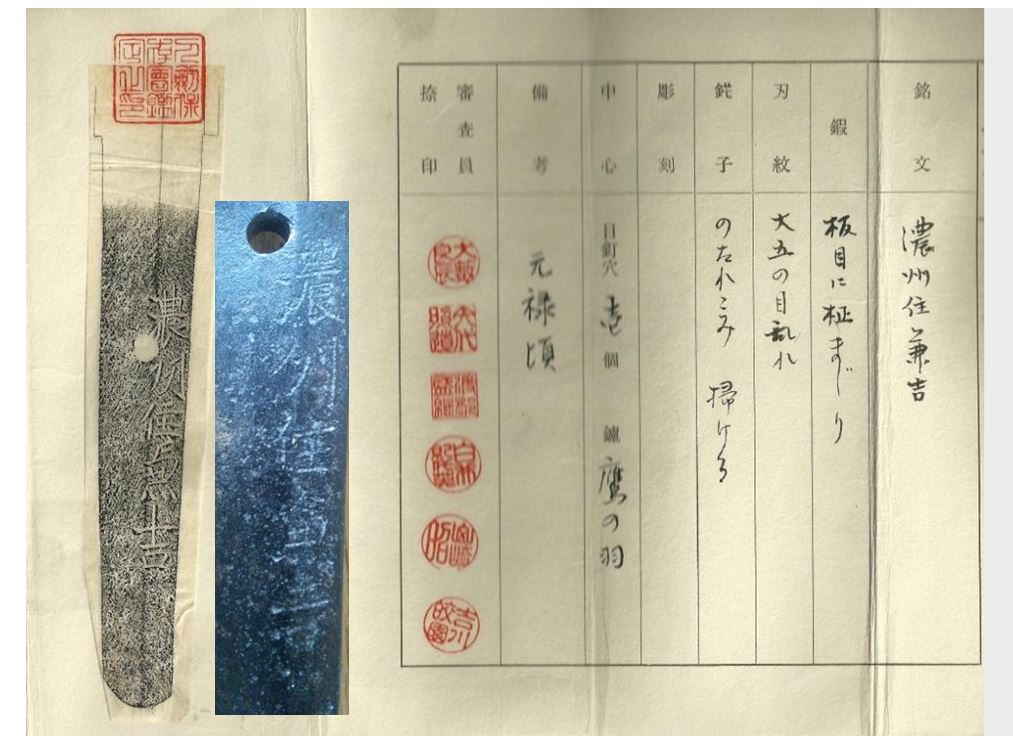 銘文
濃州住兼吉
鍜
板目に柾まじり
刃紋
大五の目乱れ
鋩子
のたれこみ 掃ける
彫刻
中心
目釘穴 壱個 鑢 鷹の羽
備考
元禄頃
審査員
捺印
吉川皎園
濃州住兼吉
濃州住兼吉